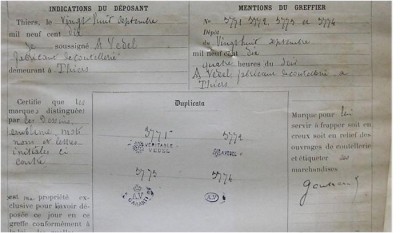 INDICATIONS DU DÉPOSANT
Thiers, le Vingt huit Septembre
mil neuf cent dix
Je soussigné A Vedel
fabricant de coutellerie
demeurant à Thiers
MENTIONS DU GREFFIER
No 5771 5772, 5773 et 5774
Dépôt
du Vingt huit Septembre
mil neuf cent dix
quatre heures du soir
A Vedel, fabricant de coutellerie à
Thiers
Certifie que les
marques distinguées
par les dessins,
emblème, mots
noms et lettres
initiales ci
contre
est ma propriété ex-
clusive pour l'avoir dépo-
sée ce jour en ce
greffe conformément à
Duplicata
5771
VÉRITABLE
VEDEL
5772
5773
5774
Marque pour
servir à frapper soit en
creux soit en relief des
ouvrages de coutellerie
et étiqueter les
marchandises